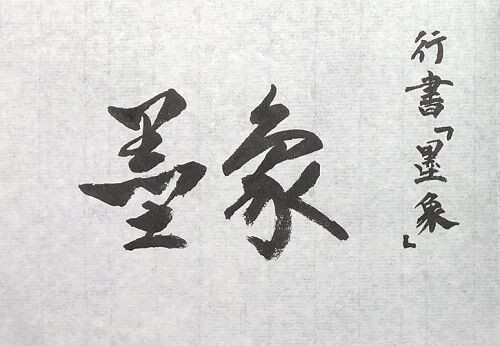 行書「墨象」
墨象